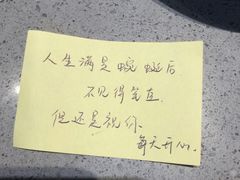 人生满是蜿蜒后
不见得笔直.
但还是祝你.
每天开心.